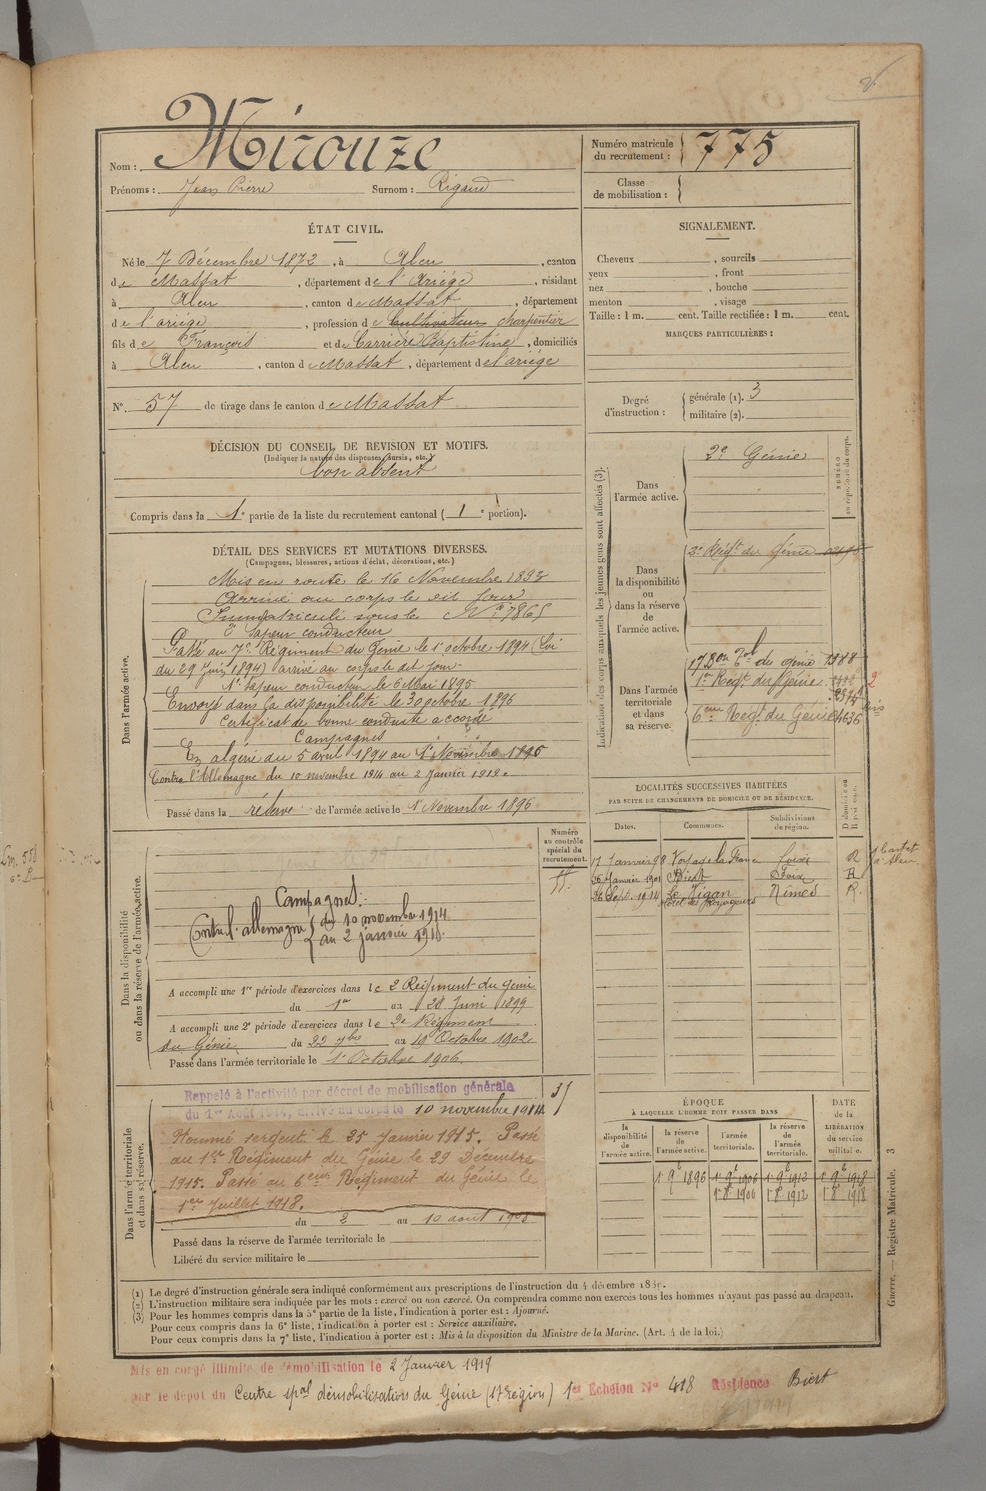 Nom : Mirouze
Prénoms : Jean Pierre Surnom : Rigaud
Numéro matricule du recrutement : 775
Classe de mobilisation :
ÉTAT CIVIL.
Né le 7 Décembre 1872, à Aleu, canton
de Massat, département de l'Ariége, résidant
à Aleu, canton de Massat, département
de l'ariége, profession de Cultivateur charpentier
fils de François et de Carrière Baptistine, domiciliés
à Aleu, canton de Massat, département de l'ariége
N° 57 de tirage dans le canton de Massat
DÉCISION DU CONSEIL DE REVISION ET MOTIFS.
(Indiquer la nature des dispenses, sursis, etc.)
bon absent
Compris dans la 1e partie de la liste du recrutement cantonal (1e portion).
DÉTAIL DES SERVICES ET MUTATIONS DIVERSES.
(Campagnes, blessures, actions d'éclat, décorations, etc.)
Dans l'armée active.
Mis en route le 16 Novembre 1893
Arrivé au corps le dit jour
Immatriculé sous le N° 7865
2e Sapeur conducteur
Passé au 7e Régiment du Génie le 1er octobre 1894 (Loi
du 29 Juin 1894) arrivé au corps le dit jour
1er Sapeur conducteur le 6 Mai 1895
Envoyé dans la disponibilité le 30 octobre 1896
Certificat de bonne conduite accordé
Campagnes
En algérie du 5 avril 1894 au 1er Novembre 1895
Contre l'Allemagne du 10 novembre 1914 au 2 Janvier 1919.
Passé dans la réserve de l'armée active le 1 Novembre 1896
Numéro au contrôle spécial du recrutement.
Dans la disponibilité ou dans la réserve de l'armée active.
Campagnes :
Contre l'allemagne { du 10 novembre 1914
au 2 janvier 1919.
A accompli une 1re période d'exercices dans le 2 Régiment du Génie
du 1er au 28 Juin 1899
A accompli une 2e période d'exercices dans le 2e Régiment
du Génie du 22 7bre au 19 Octobre 1902
Passé dans l'armée territoriale le 1 Octobre 1906
Dans l'armée territoriale et dans sa réserve.
Rappelé à l'activité par décret de mobilisation générale
du 1er Août 1914, arrivé au corps le 10 novembre 1914
Nommé sergent le 25 Janvier 1915. Passé
au 1er Régiment du Génie le 29 Décembre
1915. Passé au 6ème Régiment du Génie le
1er Juillet 1918.
du 2 au 10 août 1908
Passé dans la réserve de l'armée territoriale le
Libéré du service militaire le
SIGNALEMENT.
Cheveux , sourcils
yeux , front
nez , bouche
menton , visage
Taille : 1 m. cent. Taille rectifiée : 1 m. cent.
MARQUES PARTICULIÈRES :
Degré d'instruction : { générale (1). 3
militaire (2).
Indication des corps auxquels les jeunes gens sont affectés (3).
NUMÉRO au répertoire du corps.
Dans l'armée active.
2e Génie
Dans la disponibilité ou dans la réserve de l'armée active.
2e Régt du Génie
Dans l'armée territoriale et dans sa réserve.
17 Bon Tal de génie 1988
1er Régt du Génie
6ème Régt du Génie 4636
LOCALITÉS SUCCESSIVES HABITÉES
PAR SUITE DE CHANGEMENTS DE DOMICILE OU DE RÉSIDENCE.
Dates. Communes. Subdivisions de région. D domicile ou R résidence.
17 Janvier 98 Voyage la France Foix R
26 Janvier 1901 Biert Foix R
26 Sept. 1914 Le Vigan Nîmes R.
Hôtel des Voyageurs
ÉPOQUE
À LAQUELLE L'HOMME DOIT PASSER DANS
DATE de la LIBÉRATION du service militaire.
la disponibilité de l'armée active.
la réserve de l'armée active.
l'armée territoriale.
la réserve de l'armée territoriale.
1 9e 1896 1 9e 1906 1 9e 1912 1 9e 1918
1 8e 1906 1 8e 1912 1 8e 1918
Guerre. — Registre Matricule. 3
(1) Le degré d'instruction générale sera indiqué conformément aux prescriptions de l'instruction du 4 décembre 1889.
(2) L'instruction militaire sera indiquée par les mots : exercé ou non exercé. On comprendra comme non exercés tous les hommes n'ayant pas passé au drapeau.
(3) Pour les hommes compris dans la 5e partie de la liste, l'indication à porter est : Ajourné.
Pour ceux compris dans la 6e liste, l'indication à porter est : Service auxiliaire.
Pour ceux compris dans la 7e liste, l'indication à porter est : Mis à la disposition du Ministre de la Marine. (Art. 4 de la loi.)
Mis en congé illimité de démobilisation le 2 Janvier 1919
par le dépôt du Centre spal démobilisation du Génie (17e région) 1er Echelon N° 418 Résidence Biert